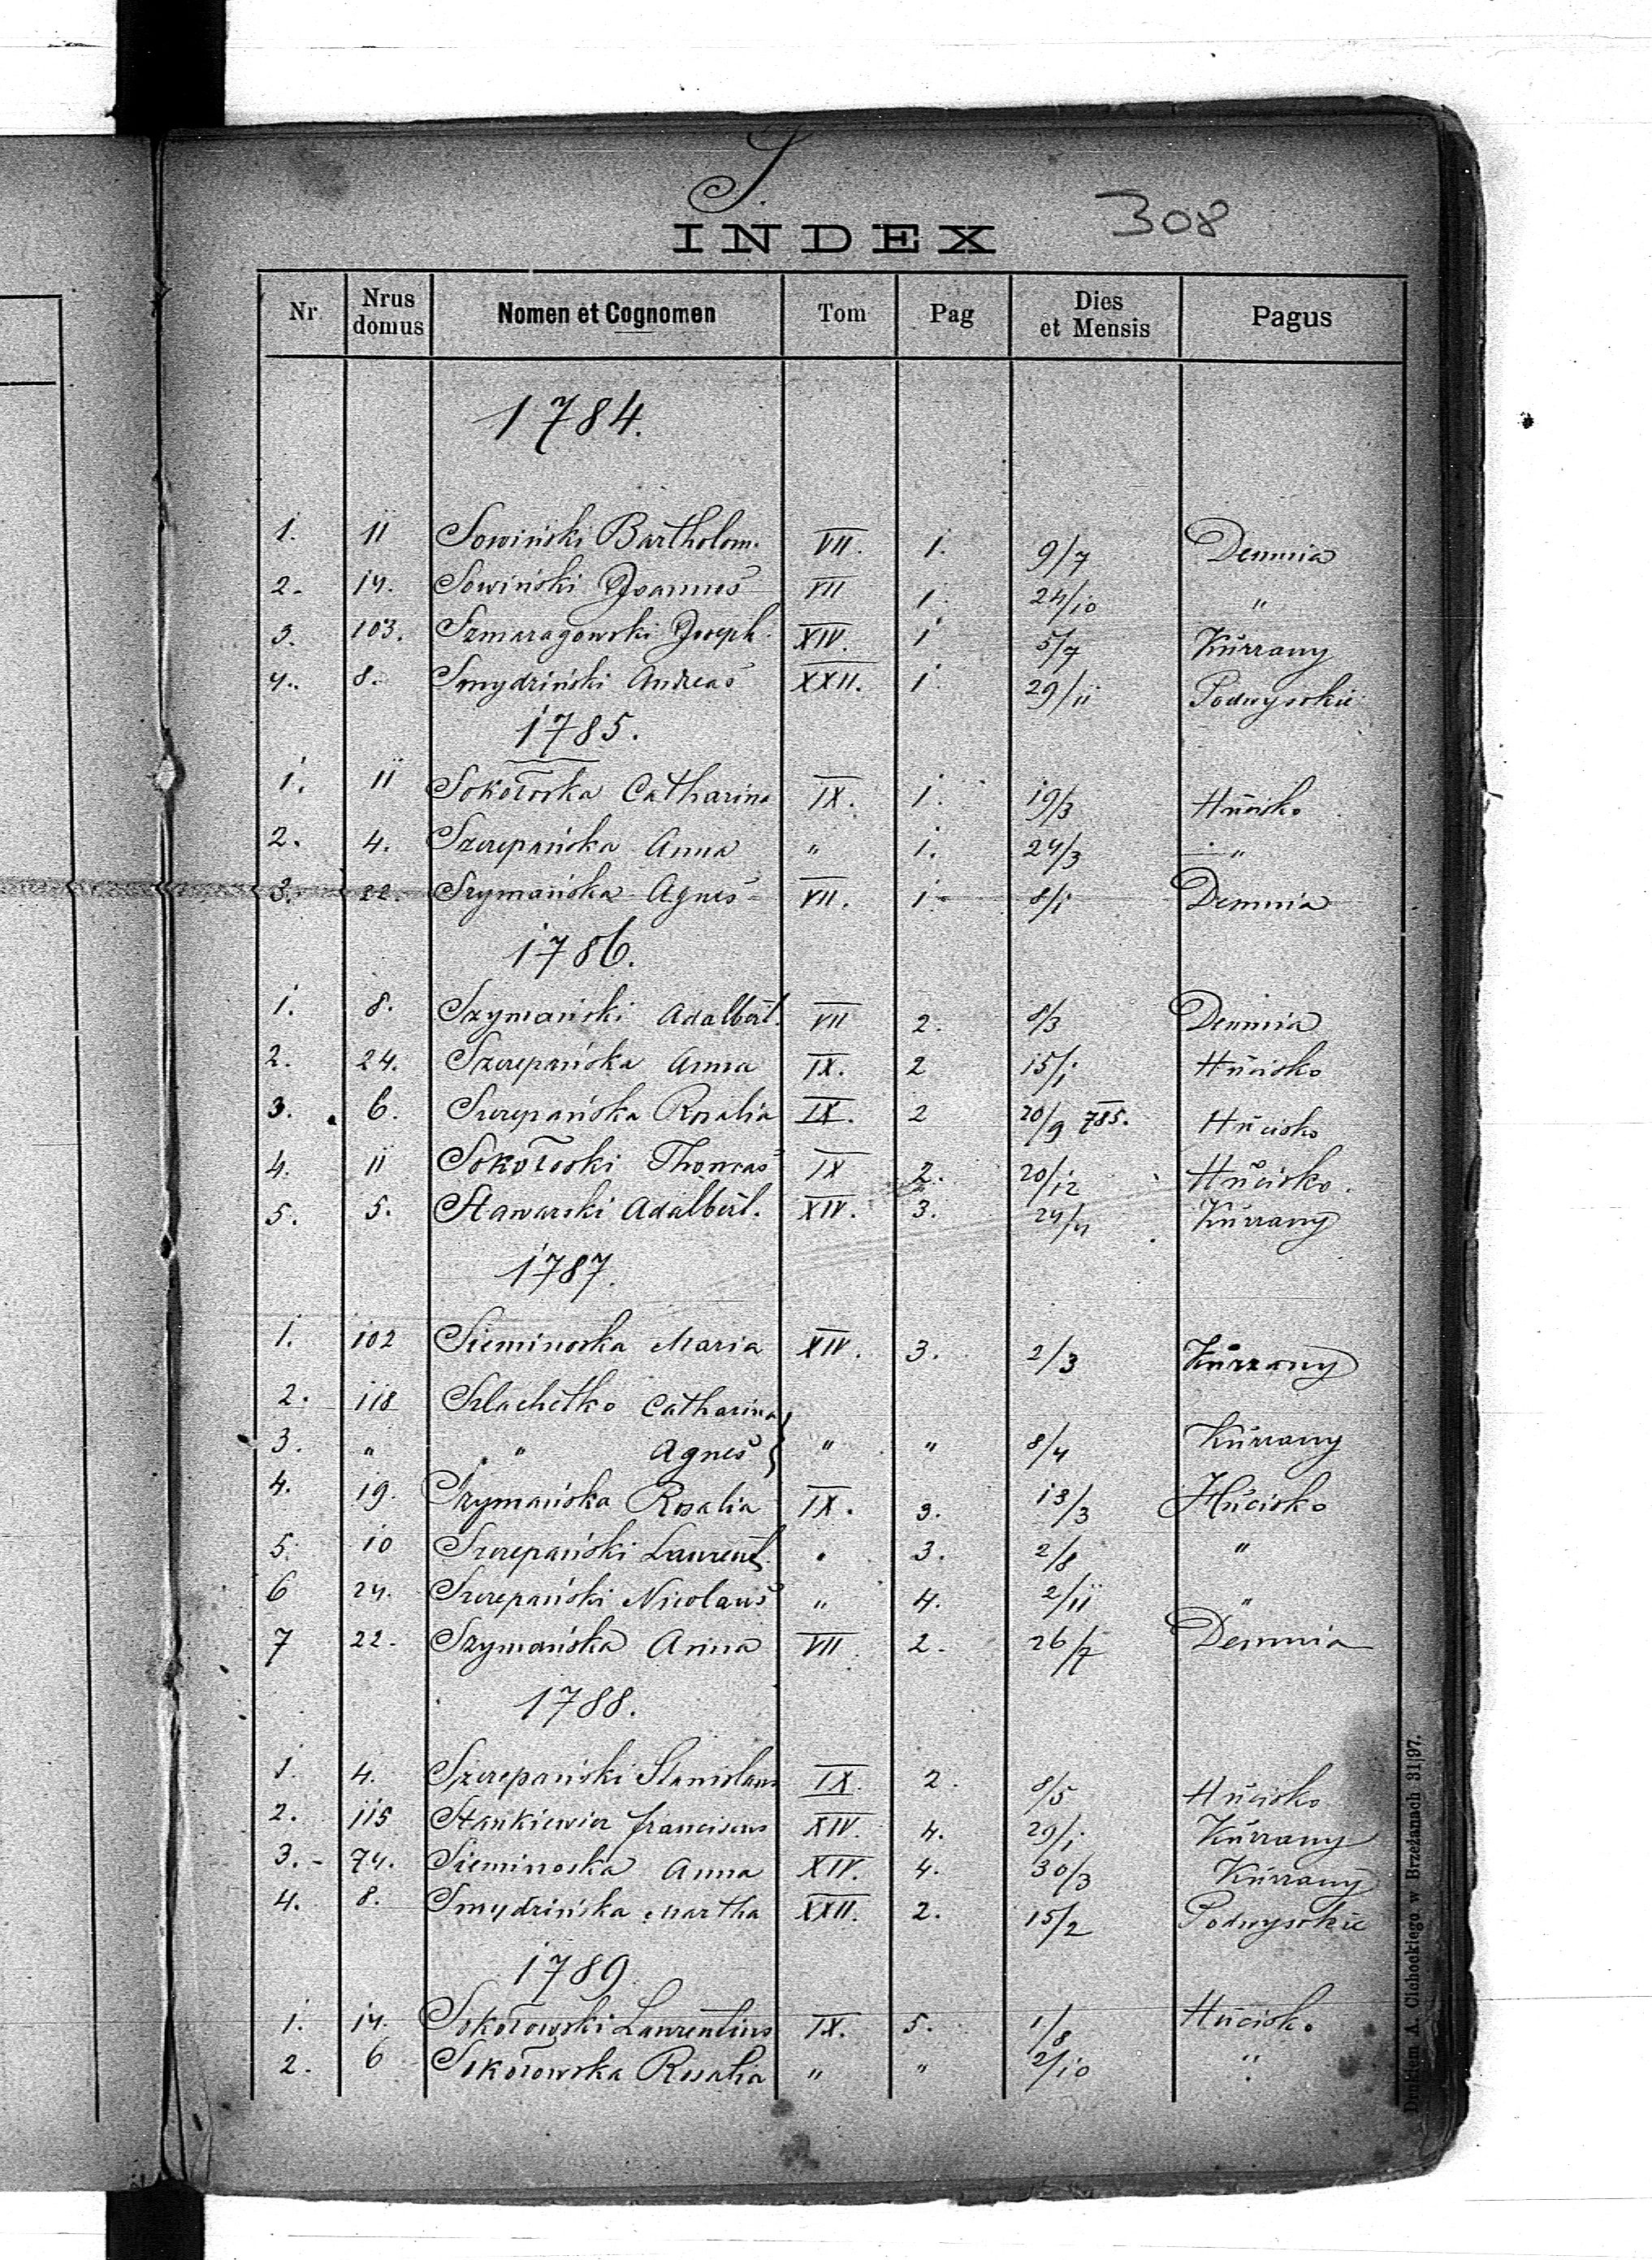 S.
308
INDEX
Nr Nrus domus Nomen et Cognomen Tom Pag Dies et Mensis Pagus
1784.
1. 11 Sowiński Bartholom. VII. 1. 9/7 Demnia
2. 14. Sowiński Joannes VII 1. 24/10 "
3. 103. Szmaragowski Joseph. XIV. 1 5/7 Kurzany
4. 8. Smydziński Andreas XXII. 1. 29/11 Podwysokie
1785.
1. 11 Sokołoska Catharina IX. 1. 19/3 Hucisko
2. 4. Szczepańska Anna " 1. 24/3 "
3. 22. Szymańska Agnes VII. 1. 8/1 Demnia
1786.
1. 8. Szymański Adalbert. VII 2. 8/3 Demnia
2. 24. Szczepańska Anna IX. 2 15/1 Hucisko
3. 6. Szczepańska Rosalia IX. 2 20/9 785. Hucisko
4. 11 Sokołoski Thomas IX 2. 20/12 Hucisko.
5. 5. Stawarski Adalbert. XIV. 3. 24/4 Kurzany
1787.
1. 102 Sieminoska Maria XIV. 3. 2/3 Kurzany
2. 118 Szlachetko Catharina
3. " " Agnes } " " 8/4 Kurzany
4. 19. Szymańska Rosalia IX. 3. 13/3 Hucisko
5. 10 Szczepański Laurent. " 3. 2/8 "
6 24. Szczepański Nicolaus " 4. 2/11 "
7 22. Szymańska Anna VII 2. 26/7 Demnia
1788.
1. 4. Szczepański Stanislaus IX. 2. 8/5 Hucisko
2. 115 Stankiewicz Franciscus XIV. 4. 29/1 Kurzany
3. 74. Sieminoska Anna XIV. 4. 30/3 Kurzany
4. 8. Smydzińska Martha XXII. 2. 15/2 Podwysokie
1789.
1. 14. Sokołowski Laurentius IX. 5. 1/8 Hucisko
2. 6 Sokołowska Rosalia " " 2/10 "
Drukiem A. Cichockiego w Brzeżanach 31|97.